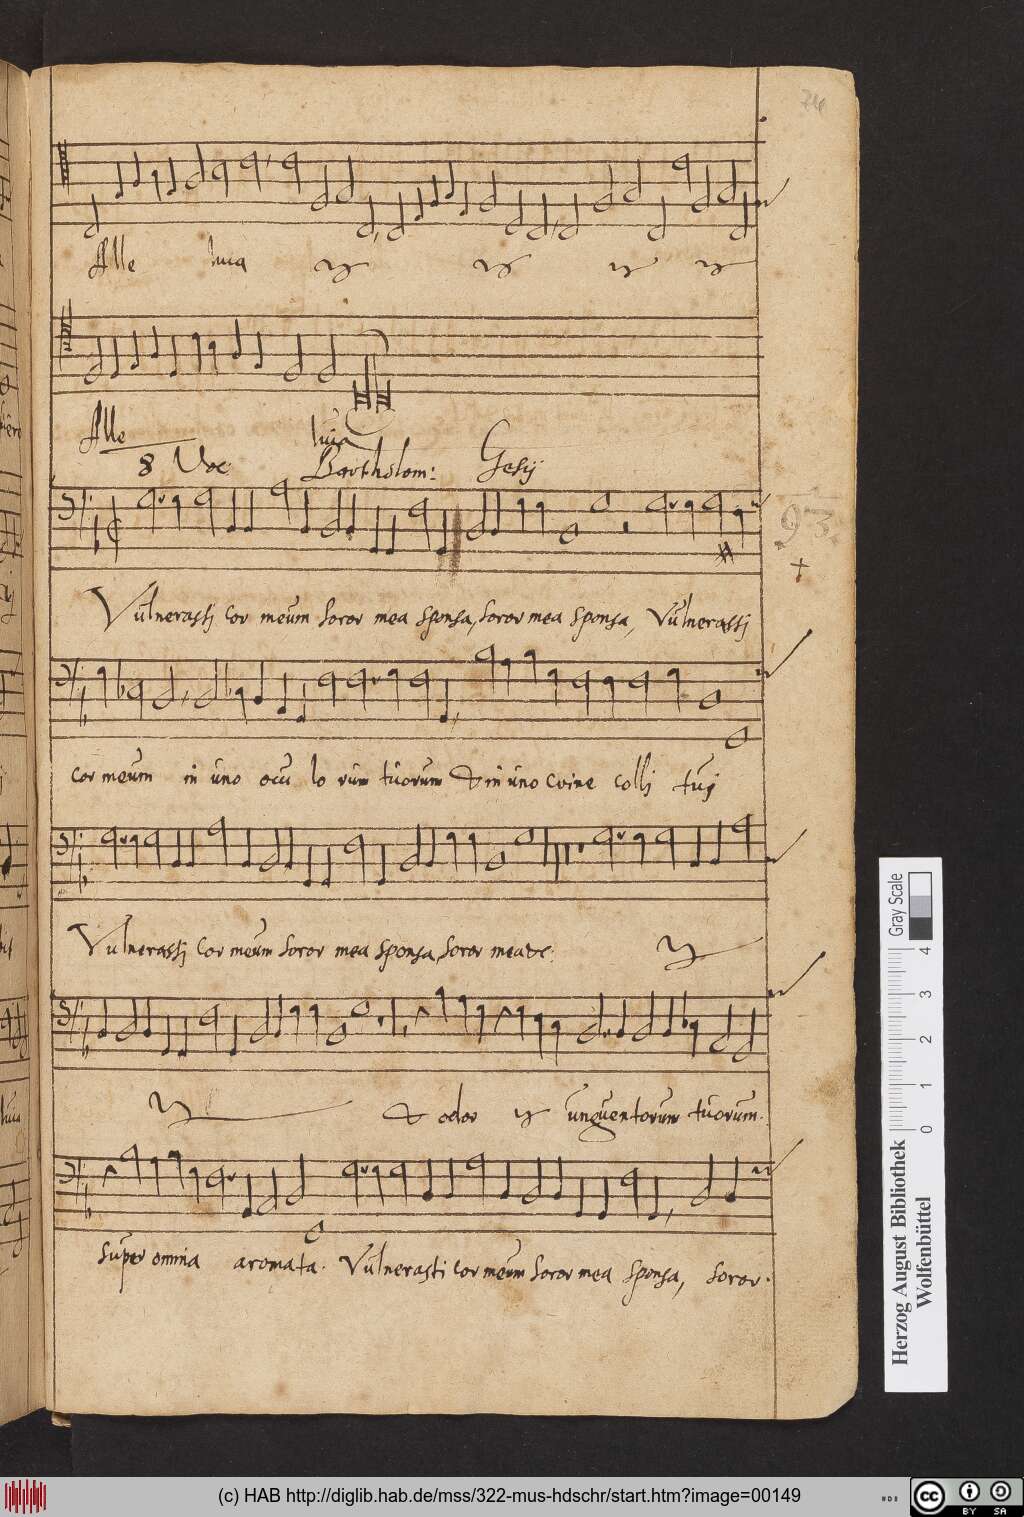 74
Alle luia
Alle luia
8 Voc: Bartholom: Gesij
93.
Vulnerasti cor meum soror mea sponsa, soror mea sponsa, Vulnerasti
cor meum in uno ocu lo rum tuorum & in uno crine colli tuj
Vulnerasti cor meum soror mea sponsa, soror mea &c:
& odor unguentorum tuorum.
super omnia aromata. Vulnerasti cor meum soror mea sponsa, soror.
Gray Scale
0 1 2 3 4
Herzog August Bibliothek
Wolfenbüttel
(c) HAB http://diglib.hab.de/mss/322-mus-hdschr/start.htm?image=00149
cc BY SA